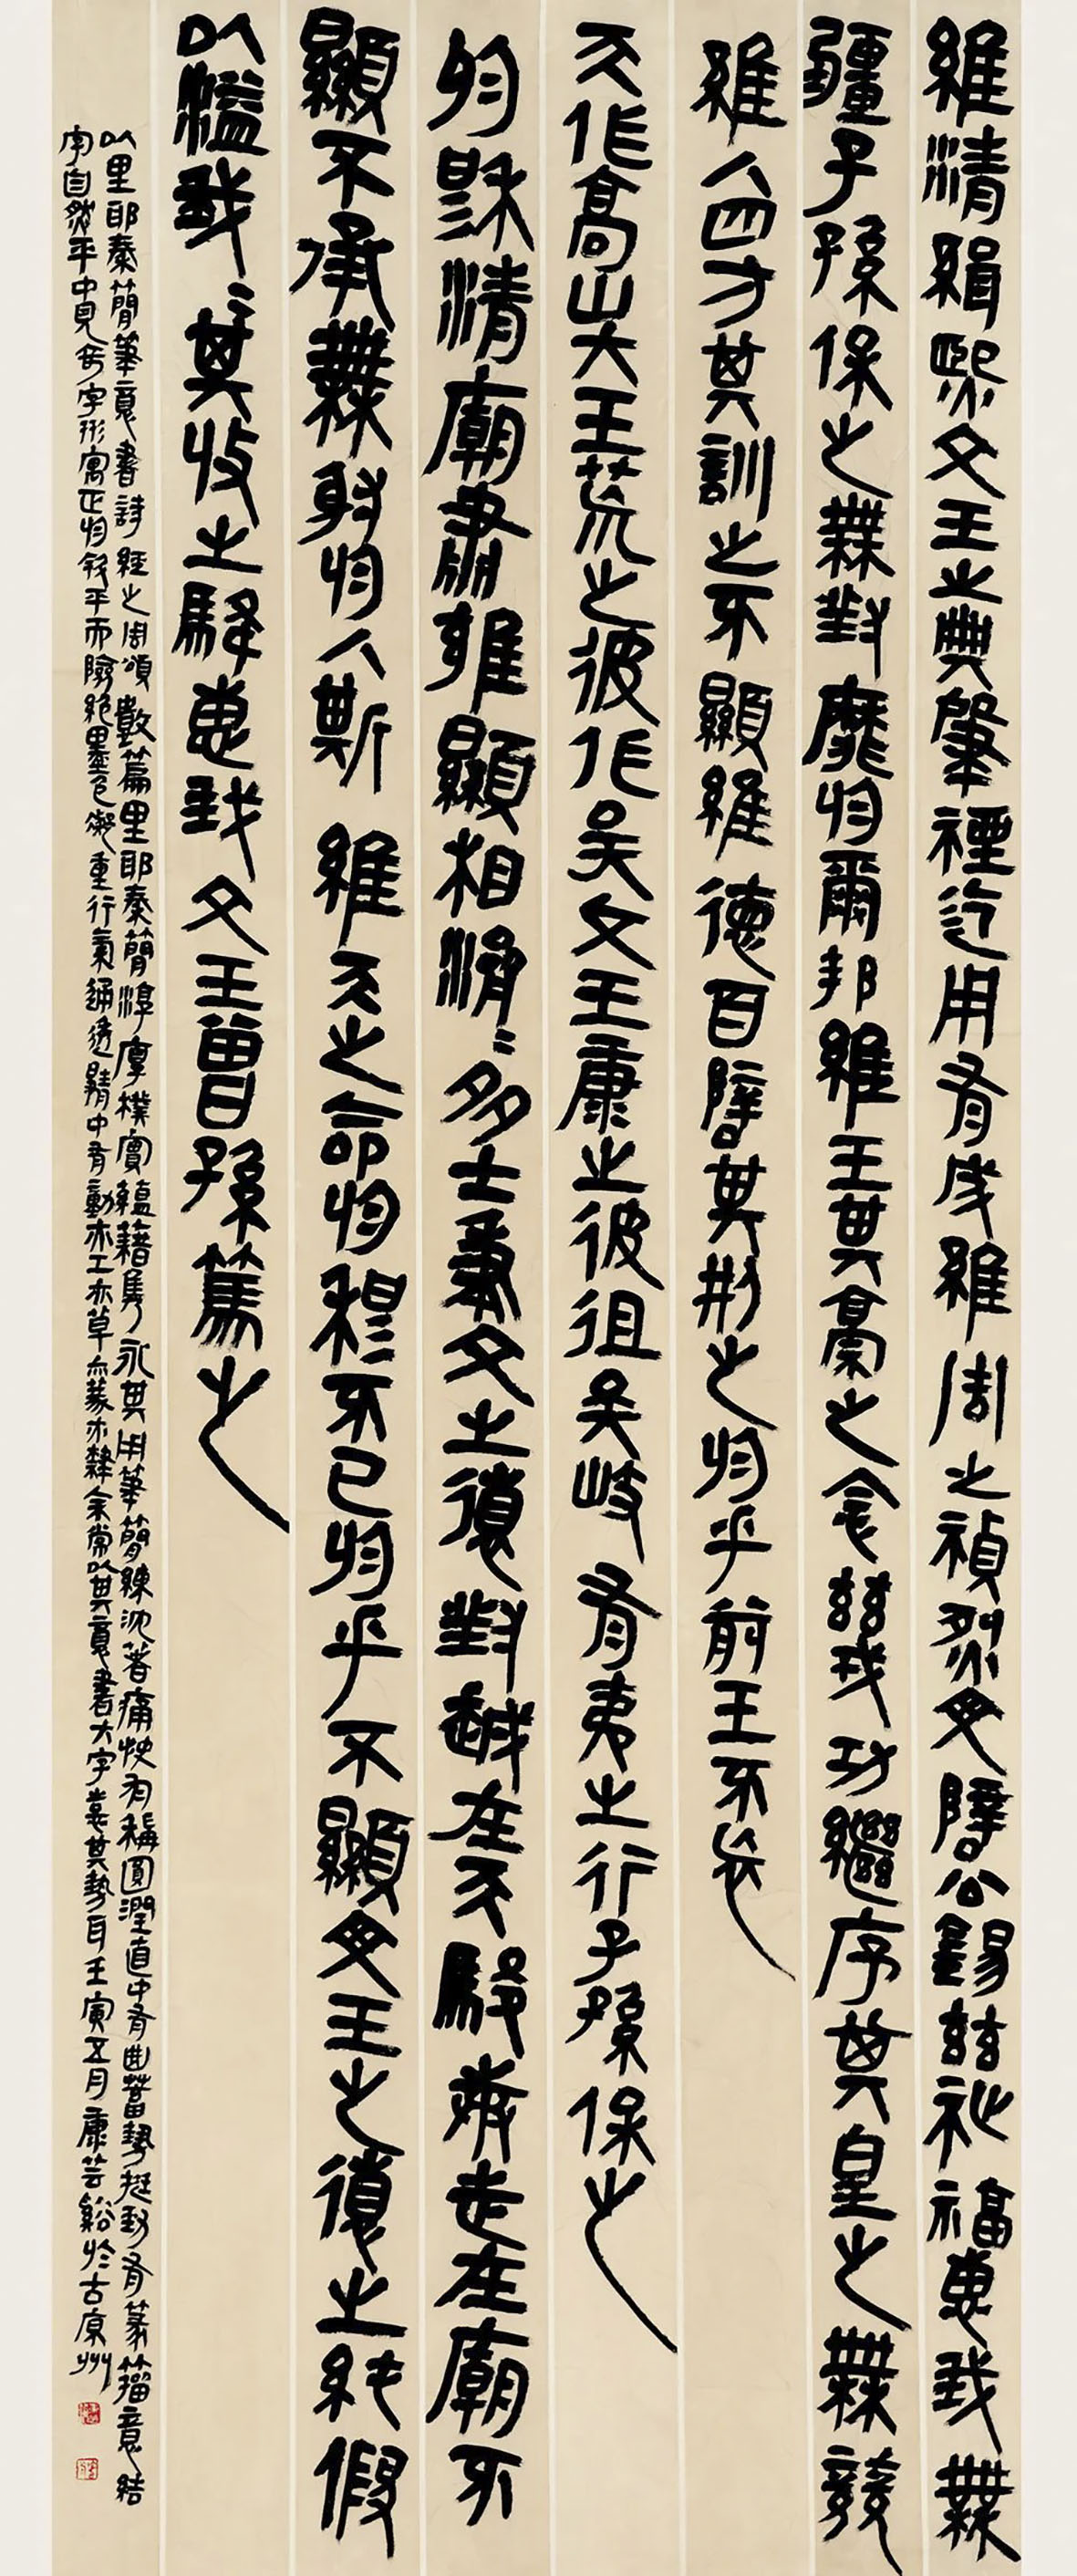 維清緝熙文王之典肇禋迄用有成維周之禎烈文辟公錫茲祉福惠我無
疆子孫保之無封靡於爾邦維王其崇之念茲戎功繼序其皇之無競
維人四方其訓之不顯維德百辟其刑之於乎前王不忘
天作高山大王荒之彼作矣文王康之彼徂矣岐有夷之行子孫保之
於穆清廟肅雝顯相濟〻多士秉文之德對越在天駿奔走在廟不
顯不承無射於人斯 維天之命於穆不已於乎不顯文王之德之純假
以溢我〻其收之駿惠我文王曾孫篤之
以里耶秦簡筆意書詩經之周頌數篇里耶秦簡淳厚樸實蘊藉雋永其用筆簡練沈著痛快有稱圓潤直中有曲蓄勢挺勁有篆籀意結
字自然平中見奇字形寓正於欹平而險絕墨色凝重行氣通透靜中有動亦工亦草亦篆亦隸余嘗以其意書大字妄其勢耳壬寅五月康芸谿於古原州